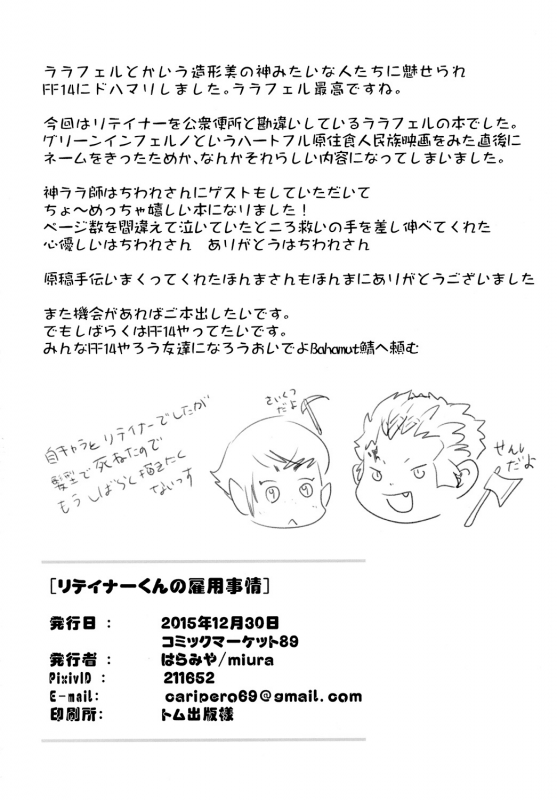 ララフェルとかいう造形美の神みたいな人たちに魅せられ
FF14にドハマリしました。ララフェル最高ですね。
今回はリテイナーを公衆便所と勘違いしているララフェルの本でした。
グリーンインフェルノというハートフル原住食人民族映画をみた直後に
ネームをきったためか、なんかそれらしい内容になってしまいました。
神ララ師はちわれさんにゲストもしていただいて
ちょ〜めっちゃ嬉しい本になりました！
ページ数を間違えて泣いていたところ救いの手を差し伸べてくれた
心優しいはちわれさん　ありがとうはちわれさん
原稿手伝いまくってくれたほんまさんもほんまにありがとうございました
また機会があればご本出したいです。
でもしばらくはFF14やってたいです。
みんなFF14やろう友達になろうおいでよBahamut鯖へ頼む
自キャラとリテイナーでしたが
髪型で死ねたので
もうしばらく描きたく
ないっす
さいくつ
だよ
せんし
だよ
[リテイナーくんの雇用事情]
発行日： 2015年12月30日
コミックマーケット89
発行者： はらみや/miura
PixivID： 211652
E-mail: caripero69@gmail.com
印刷所: トム出版様